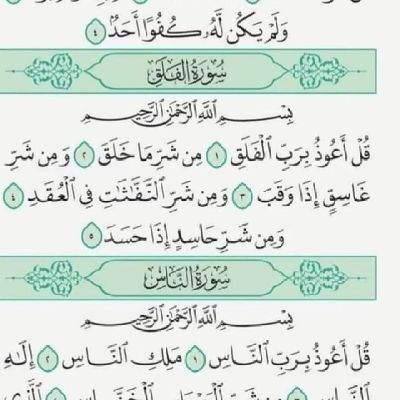 وَلَمۡ يَكُن لَّهُۥ كُفُوًا أَحَدُۢ ٤
سُورَةُ الفَلَقِ
بِسۡمِ ٱللَّهِ ٱلرَّحۡمَٰنِ ٱلرَّحِيمِ
قُلۡ أَعُوذُ بِرَبِّ ٱلۡفَلَقِ ١ مِن شَرِّ مَا خَلَقَ ٢ وَمِن شَرِّ
غَاسِقٍ إِذَا وَقَبَ ٣ وَمِن شَرِّ ٱلنَّفَّٰثَٰتِ فِي ٱلۡعُقَدِ ٤
وَمِن شَرِّ حَاسِدٍ إِذَا حَسَدَ ٥
سُورَةُ النَّاسِ
بِسۡمِ ٱللَّهِ ٱلرَّحۡمَٰنِ ٱلرَّحِيمِ
قُلۡ أَعُوذُ بِرَبِّ ٱلنَّاسِ ١ مَلِكِ ٱلنَّاسِ ٢ إِلَٰهِ